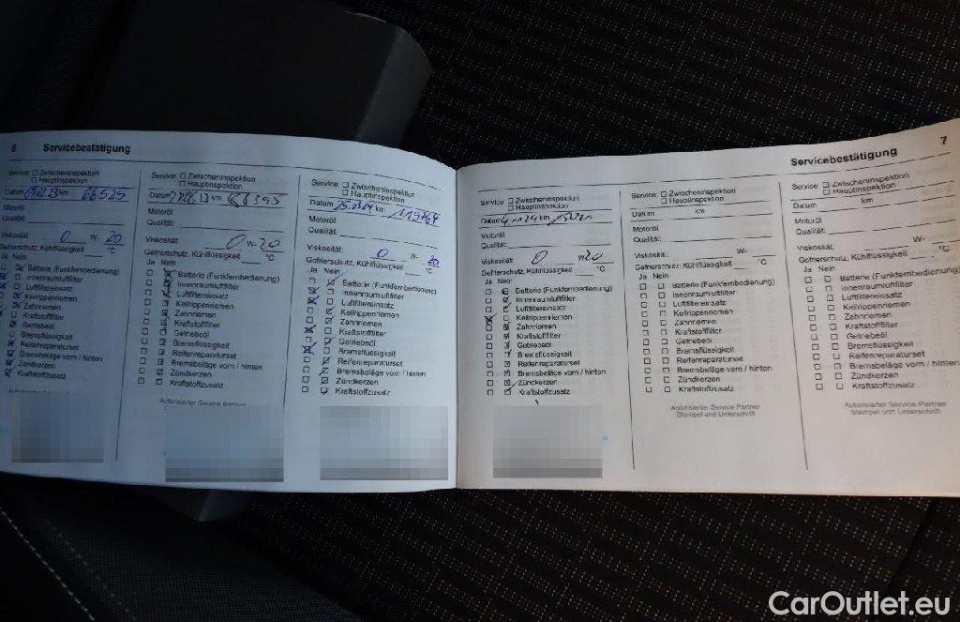 6 Servicebestätigung
Service: Zwischeninspektion
Hauptinspektion
Datum km 66525
Motoröl
Qualität:
Viskosität: 0 W- 20
Gefrierschutz, Kühlflüssigkeit °C
Ja Nein
Batterie (Funkfernbedienung)
Innenraumluftfilter
Luftfiltereinsatz
Keilrippenriemen
Zahnriemen
Kraftstofffilter
Getriebeöl
Bremsflüssigkeit
Reifenreparaturset
Bremsbeläge vorn / hinten
Zündkerzen
Kraftstoffzusatz
Service: Zwischeninspektion
Hauptinspektion
Datum km
Motoröl
Qualität:
Viskosität: 0 W- 20
Gefrierschutz, Kühlflüssigkeit °C
Ja Nein
Batterie (Funkfernbedienung)
Innenraumluftfilter
Luftfiltereinsatz
Keilrippenriemen
Zahnriemen
Kraftstofffilter
Getriebeöl
Bremsflüssigkeit
Reifenreparaturset
Bremsbeläge vorn / hinten
Zündkerzen
Kraftstoffzusatz
Autorisierter Service Partner
Service: Zwischeninspektion
Hauptinspektion
Datum km
Motoröl
Qualität:
Viskosität: 0 W- 20
Gefrierschutz, Kühlflüssigkeit °C
Ja Nein
Batterie (Funkfernbedienung)
Innenraumluftfilter
Luftfiltereinsatz
Keilrippenriemen
Zahnriemen
Kraftstofffilter
Getriebeöl
Bremsflüssigkeit
Reifenreparaturset
Bremsbeläge vorn / hinten
Zündkerzen
Kraftstoffzusatz
Servicebestätigung 7
Service: Zwischeninspektion
Hauptinspektion
Datum km
Motoröl
Qualität:
Viskosität: 0 W- 20
Gefrierschutz, Kühlflüssigkeit °C
Ja Nein
Batterie (Funkfernbedienung)
Innenraumluftfilter
Luftfiltereinsatz
Keilrippenriemen
Zahnriemen
Kraftstofffilter
Getriebeöl
Bremsflüssigkeit
Reifenreparaturset
Bremsbeläge vorn / hinten
Zündkerzen
Kraftstoffzusatz
Service: Zwischeninspektion
Hauptinspektion
Datum km
Motoröl
Qualität:
Viskosität: W-
Gefrierschutz, Kühlflüssigkeit °C
Ja Nein
Batterie (Funkfernbedienung)
Innenraumluftfilter
Luftfiltereinsatz
Keilrippenriemen
Zahnriemen
Kraftstofffilter
Getriebeöl
Bremsflüssigkeit
Reifenreparaturset
Bremsbeläge vorn / hinten
Zündkerzen
Kraftstoffzusatz
Autorisierter Service Partner
Stempel und Unterschrift
Service: Zwischeninspektion
Hauptinspektion
Datum km
Motoröl
Qualität:
Viskosität: W-
Gefrierschutz, Kühlflüssigkeit °C
Ja Nein
Batterie (Funkfernbedienung)
Innenraumluftfilter
Luftfiltereinsatz
Keilrippenriemen
Zahnriemen
Kraftstofffilter
Getriebeöl
Bremsflüssigkeit
Reifenreparaturset
Bremsbeläge vorn / hinten
Zündkerzen
Kraftstoffzusatz
Autorisierter Service Partner
Stempel und Unterschrift
CarOutlet.eu